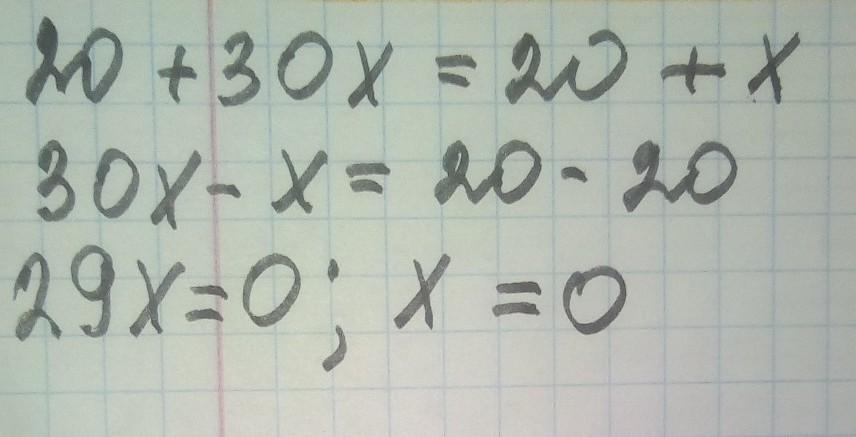 20 + 30x = 20 + x
30x - x = 20 - 20
29x = 0; x = 0